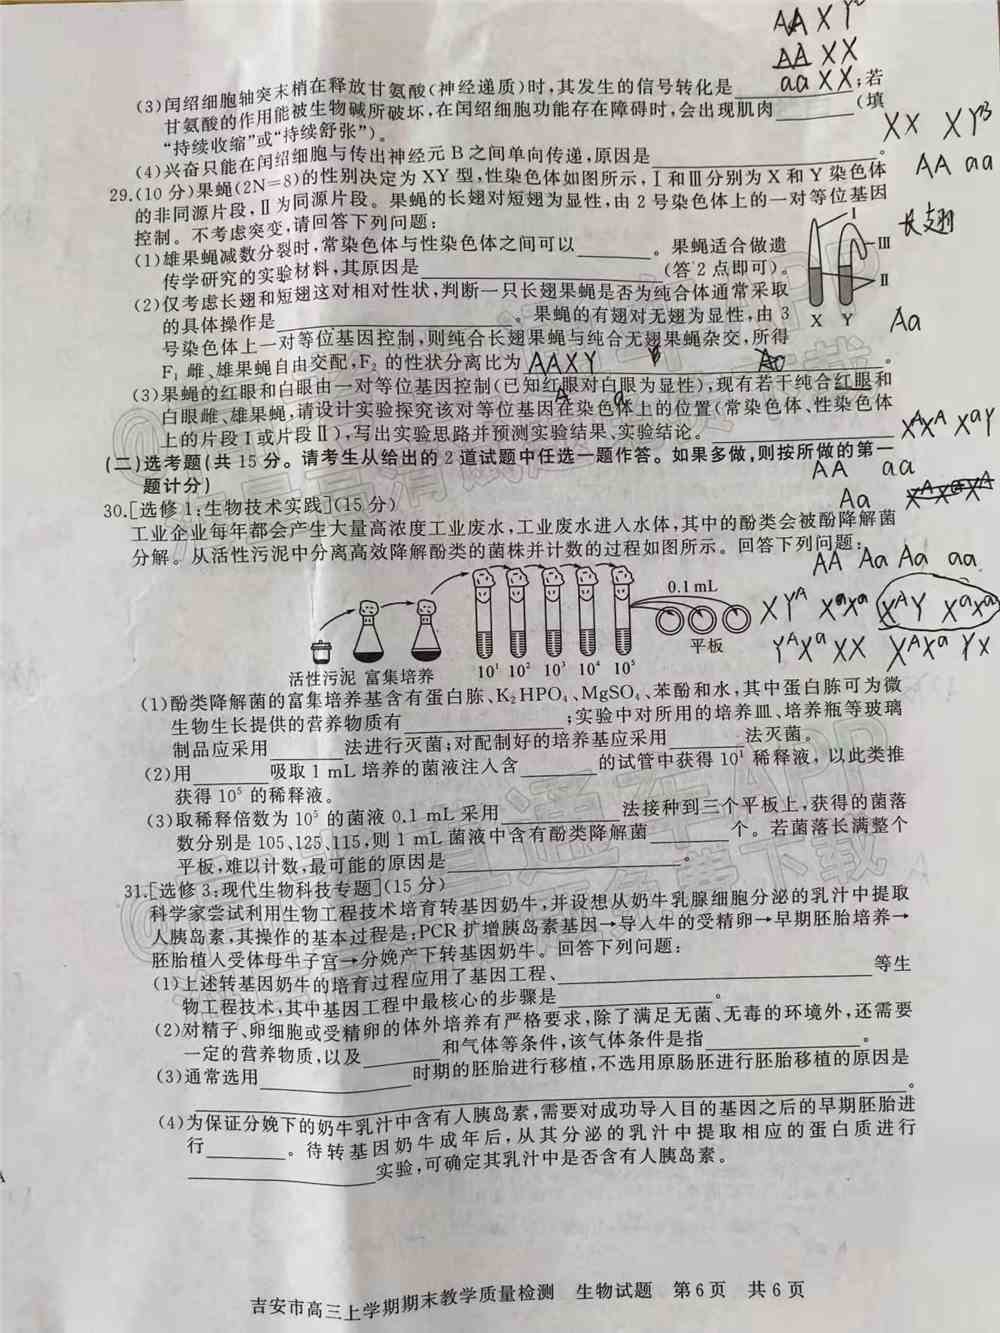 AA X Y
AA XX
aa XX
(3)闰绍细胞轴突末梢在释放甘氨酸(神经递质)时,其发生的信号转化是________;若
甘氨酸的作用能被生物碱所破坏,在闰绍细胞功能存在障碍时,会出现肌肉________(填
“持续收缩”或“持续舒张”)。
XX XYᴮ
(4)兴奋只能在闰绍细胞与传出神经元B之间单向传递,原因是________________。
AA aa
29.(10分)果蝇(2N=8)的性别决定为XY型,性染色体如图所示,Ⅰ和Ⅲ分别为X和Y染色体
的非同源片段,Ⅱ为同源片段。果蝇的长翅对短翅为显性,由2号染色体上的一对等位基因
控制。不考虑突变,请回答下列问题:
长翅
(1)雄果蝇减数分裂时,常染色体与性染色体之间可以________。果蝇适合做遗
传学研究的实验材料,其原因是________________(答2点即可)。
Ⅰ
Ⅲ
Ⅱ
X Y
(2)仅考虑长翅和短翅这对相对性状,判断一只长翅果蝇是否为纯合体通常采取
的具体操作是________________。果蝇的有翅对无翅为显性,由3
号染色体上一对等位基因控制,则纯合长翅果蝇与纯合无翅果蝇杂交,所得
F₁雌、雄果蝇自由交配,F₂的性状分离比为________________。
Aa
AAXY
(3)果蝇的红眼和白眼由一对等位基因控制(已知红眼对白眼为显性),现有若干纯合红眼和
A a
白眼雌、雄果蝇,请设计实验探究该对等位基因在染色体上的位置(常染色体、性染色体
上的片段Ⅰ或片段Ⅱ),写出实验思路并预测实验结果、实验结论。________________
XᴬXᴬ XᵃY
(二)选考题(共15分。请考生从给出的2道试题中任选一题作答。如果多做,则按所做的第一
题计分)
AA aa
Aa
30.[选修1:生物技术实践](15分)
工业企业每年都会产生大量高浓度工业废水,工业废水进入水体,其中的酚类会被酚降解菌
分解。从活性污泥中分离高效降解酚类的菌株并计数的过程如图所示。回答下列问题:
AA Aa Aa aa
XYᴬ XᵃXᵃ XᴬY XᵃXᵃ
YᴬXᵃ XX XᴬXᵃ YX
0.1 mL
平板
活性污泥 富集培养 10¹ 10² 10³ 10⁴ 10⁵
(1)酚类降解菌的富集培养基含有蛋白胨、K₂HPO₄、MgSO₄、苯酚和水,其中蛋白胨可为微
生物生长提供的营养物质有________________;实验中对所用的培养皿、培养瓶等玻璃
制品应采用________法进行灭菌;对配制好的培养基应采用________法灭菌。
(2)用________吸取1 mL培养的菌液注入含________的试管中获得10¹稀释液,以此类推
获得10⁵的稀释液。
(3)取稀释倍数为10⁵的菌液0.1 mL采用____________法接种到三个平板上,获得的菌落
数分别是105、125、115,则1 mL菌液中含有酚类降解菌________个。若菌落长满整个
平板,难以计数,最可能的原因是________________。
31.[选修3:现代生物科技专题](15分)
科学家尝试利用生物工程技术培育转基因奶牛,并设想从奶牛乳腺细胞分泌的乳汁中提取
人胰岛素,其操作的基本过程是:PCR扩增胰岛素基因→导入牛的受精卵→早期胚胎培养→
胚胎植入受体母牛子宫→分娩产下转基因奶牛。回答下列问题:
(1)上述转基因奶牛的培育过程应用了基因工程、________________等生
物工程技术,其中基因工程中最核心的步骤是________________。
(2)对精子、卵细胞或受精卵的体外培养有严格要求,除了满足无菌、无毒的环境外,还需要
一定的营养物质,以及________和气体等条件,该气体条件是指________________。
(3)通常选用________________时期的胚胎进行移植,不选用原肠胚进行胚胎移植的原因是
________________________________。
(4)为保证分娩下的奶牛乳汁中含有人胰岛素,需要对成功导入目的基因之后的早期胚胎进
行________。待转基因奶牛成年后,从其分泌的乳汁中提取相应的蛋白质进行
________________实验,可确定其乳汁中是否含有人胰岛素。
吉安市高三上学期期末教学质量检测 生物试题 第6页 共6页